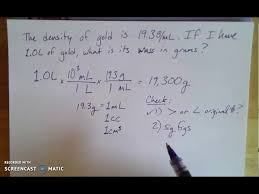 The density of gold is 19.3g/mL. If I have
1.0L of gold, what is its mass in grams?
1.0L × 10³ mL / 1 L × 19.3 g / 1 mL = 19,300g
19.3g = 1mL
1cc
1cm³
Check:
✓1) > or < original #?
2) sig figs
RECORDED WITH
SCREENCAST MATIC